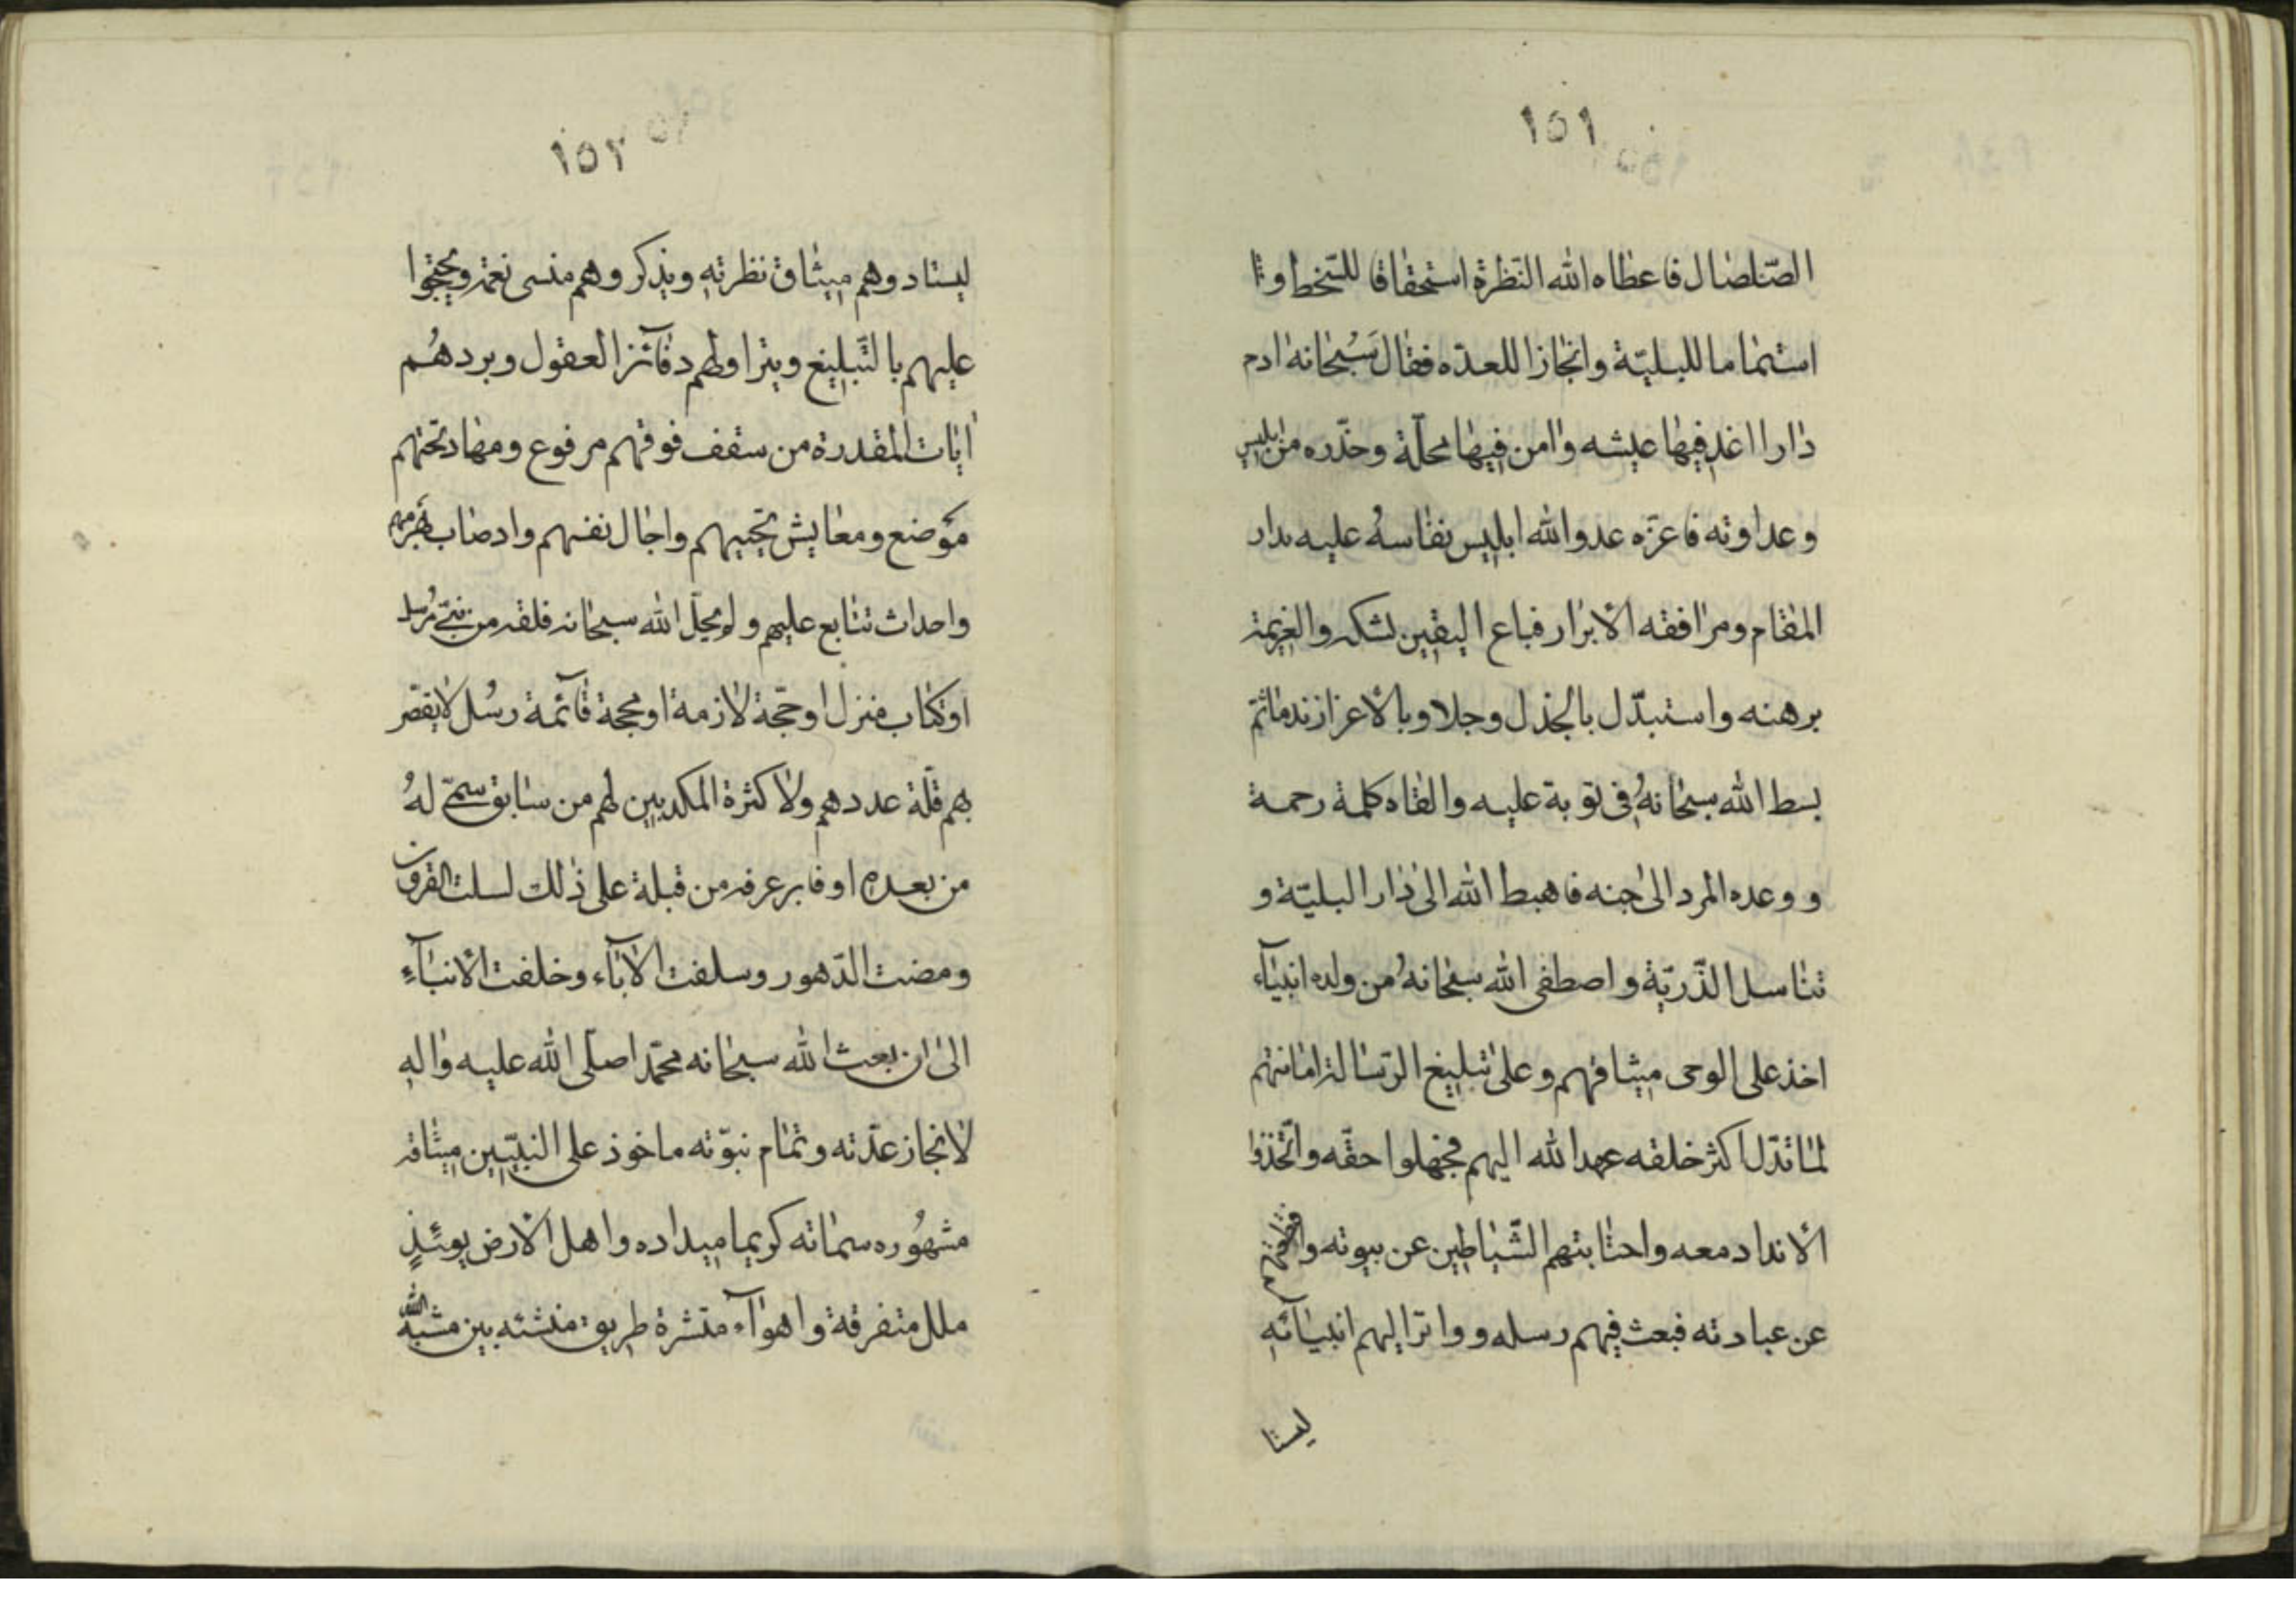 ١٥١
الصّلصال فاعطاه الله النّظرة استحقاقا للسّخط و
استتماما للبليّة وانجازا للعدّه فقال سُبحانه ادم
دارا اغد فيها عيشه وامن فيها محلّة وحذّره من ابليس
وعداوته فاعزّه عدو الله ابليس نفاسهُ عليه بدار
المقام ومرافقه الابرار فباع اليقين لشكه والعزيمة
برهنه واستبدّل بالجذل وجلا وبالاعزاز ندما ثمّ
بسط الله سبحانهُ فى توبة عليه والقاه كلمة رحمة
و وعده المرد الى جنه فاهبط الله الى دار البليّة و
تناسل الذّريّة واصطفى الله سبحانهُ من ولده انبيآء
اخذ على الوحى ميثاقهم وعلى تبليغ الرّسالة امانتهم
لما تدّل اكثر خلقه عهد الله اليهم فجهلوا حقّه واتّخذوا
الانداد معه واحتابتهم الشّياطين عن بيوته
عن عبادته فبعث فيهم رسله وواتر اليهم انبيائهِ
ليستا
١٥٢
ليستادوهم ميثاق نظرتهِ ويذكروهم منسى نعمة ويحتجوا
عليهم بالتّبليغ ويتراولهم دفآئز العقول وبردهُم
ايات المقدرة من سقف فوقهم مرفوع ومهاد تحتهم
موضع ومعايش تحييهم واجال نفسهم وادصاب
واحداث تتابع عليهم ولم يحلّ الله سبحانه فلقه من نبىّ مُرسل
او كتاب منزل او حجّة لازمة او محجة قآئمة رسُل لا يقصّر
بهم قلّة عددهم ولا كثرة المكدبين لهم من سابق سمّى لهُ
من بعده او فابر عرفه من قبلة على ذلك لسلت القرون
ومضت الدّهور وسلفت الابآء وخلفت الانبآءِ
الى ان بعث الله سبحانه محمّدا صلّى الله عليه والهِ
لانجاز عدّته وتمام نبوّته ماخوذ على النبيّين ميثاقه
مشهُوره سماته كريما ميداده واهل الارض يومئذٍ
ملل متفرقة واهوآء منتشرة طريق منشته بين مشبّه الله